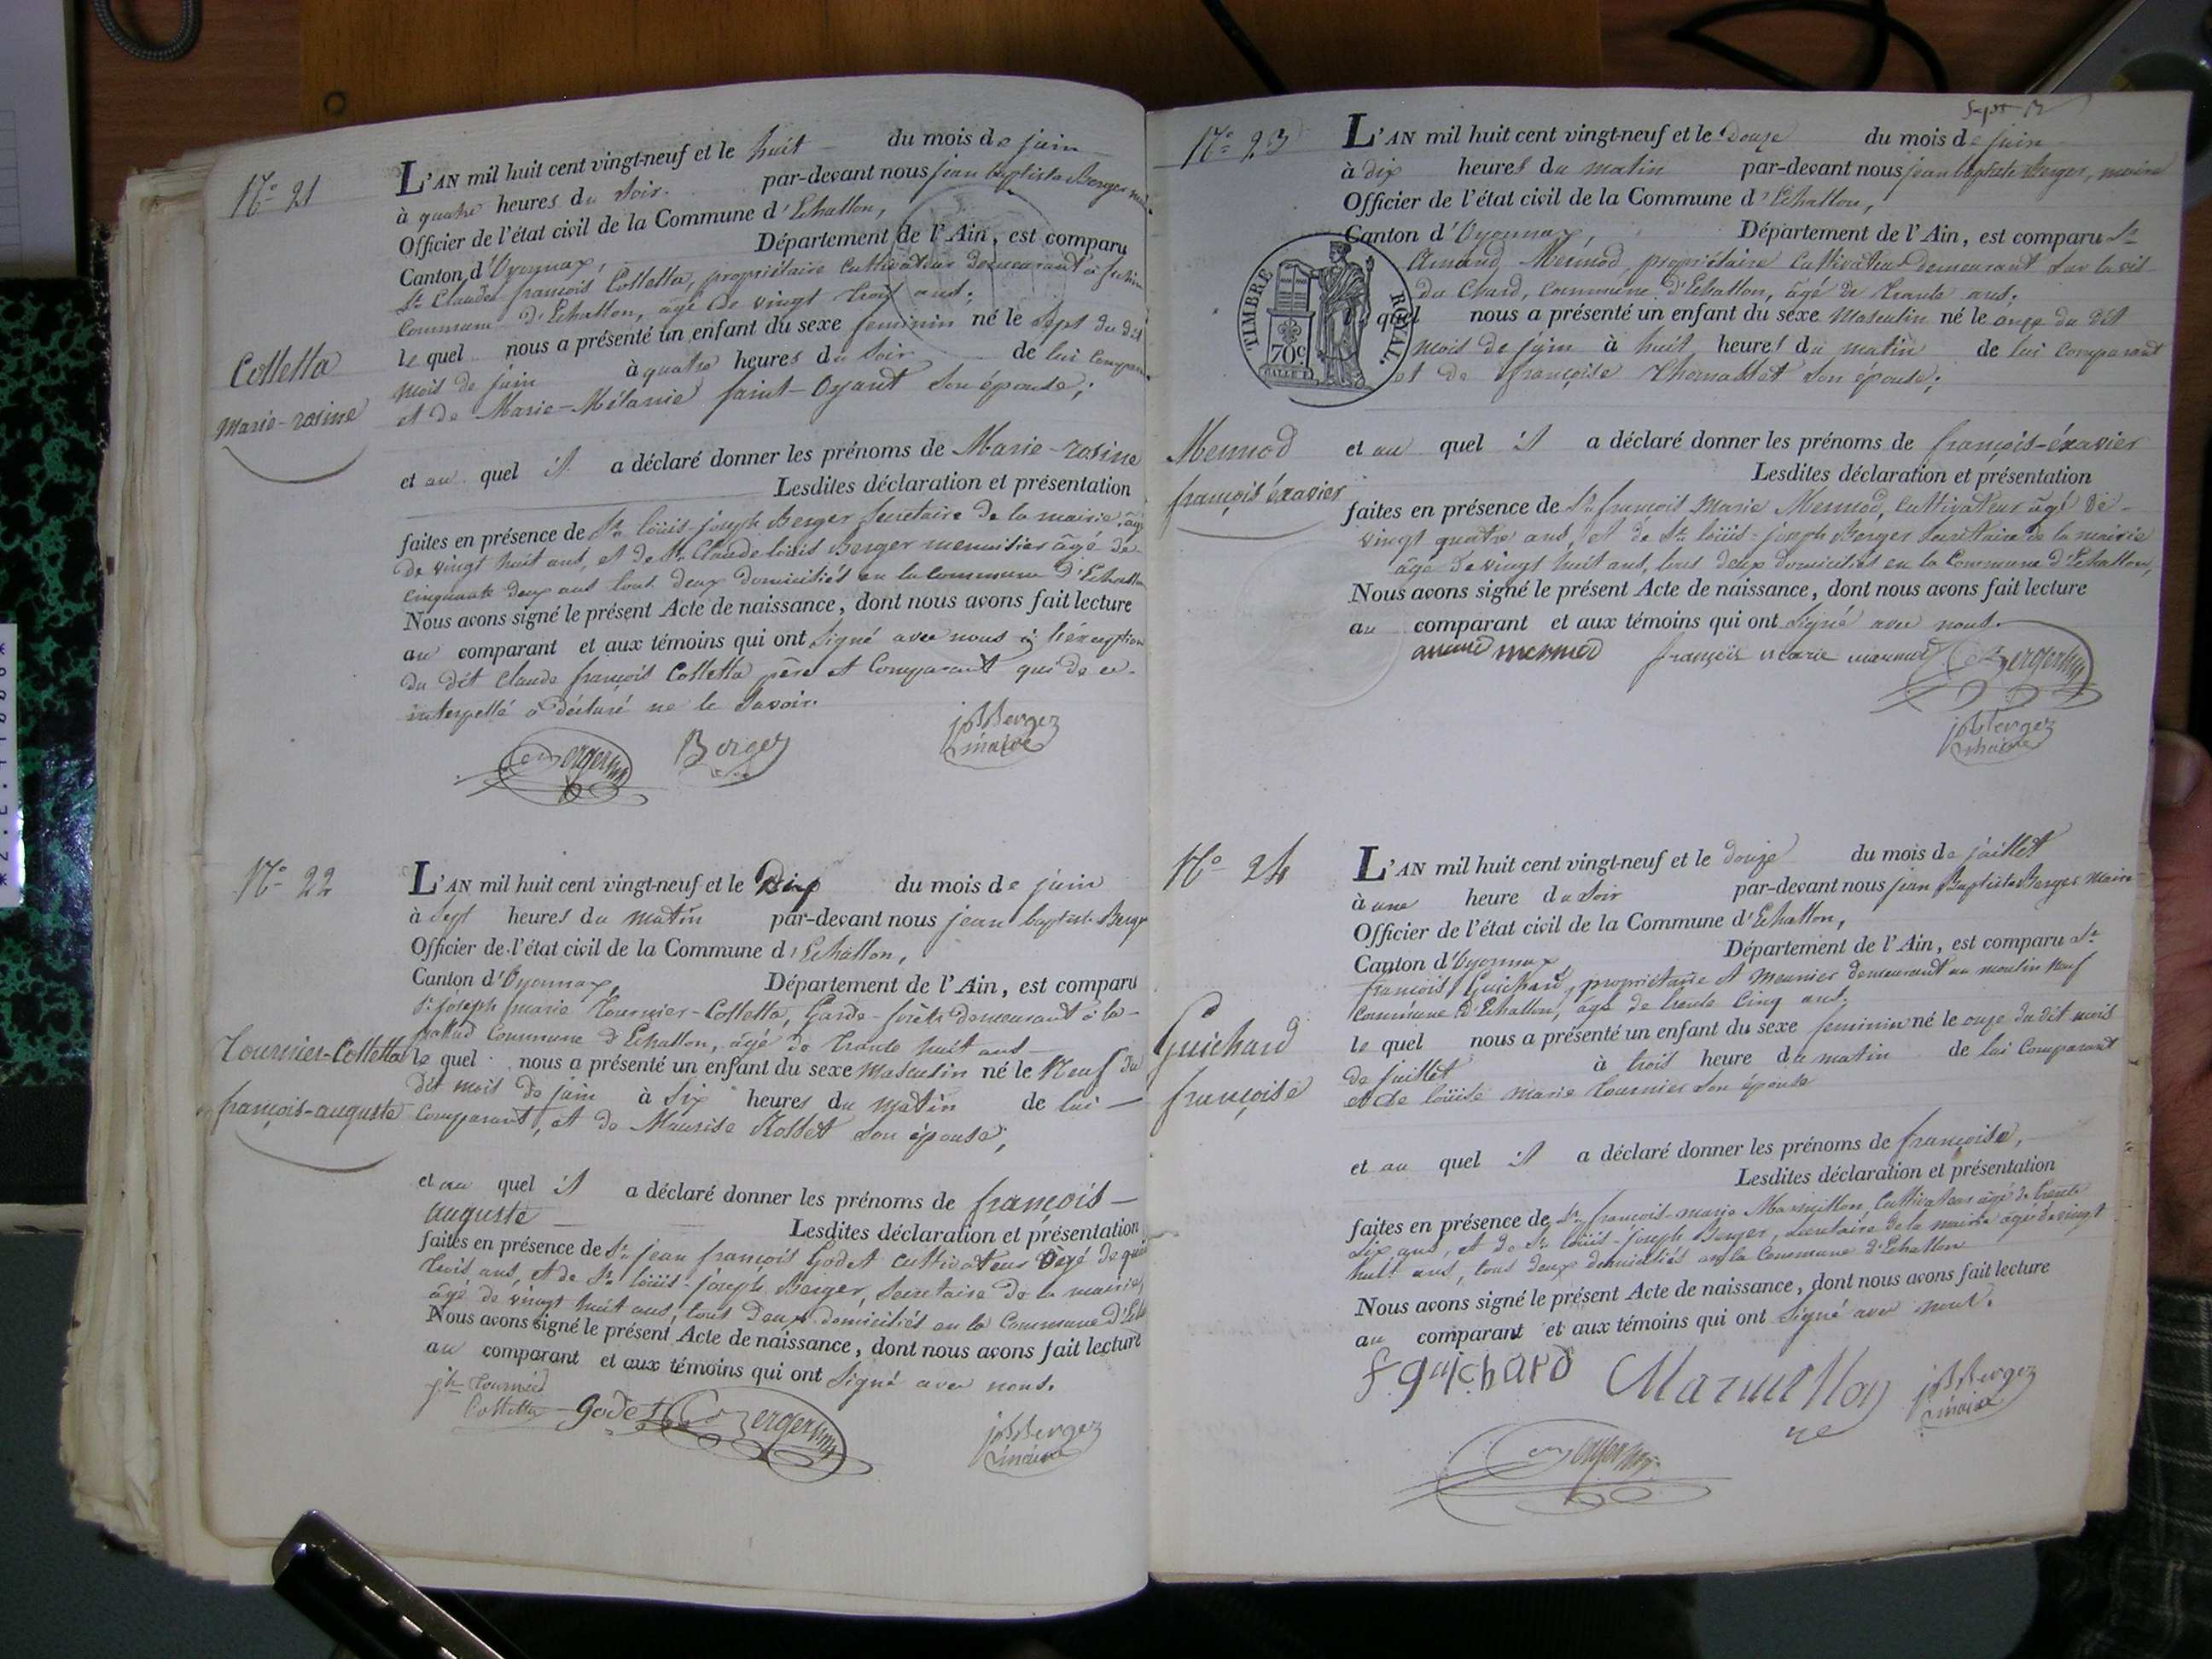 N.o 21
L'AN mil huit cent vingt-neuf et le huit du mois de juin
à quatre heures du soir. par-devant nous jean baptiste Berger
Officier de l'état civil de la Commune d'Echallon,
Canton d'Oyonnax, Département de l'Ain, est comparu
Sr Claude françois Colletta, propriétaire Cultivateur demeurant à
Commune d'Echallon, âgé de vingt trois ans;
le quel nous a présenté un enfant du sexe feminin né le sept du dit
mois de juin à quatre heures du soir de lui
et de Marie-Mélanie saint-Oyant son épouse;
Colletta
Marie-rosine
et au quel il a déclaré donner les prénoms de Marie-rosine
Lesdites déclaration et présentation
faites en présence de Sr loüis-joseph Berger secretaire de la mairie,
de vingt huit ans, et de Sr Claude loüis Berger menuisier âgé de
cinquante deux ans tous deux domiciliés en la commune d'Echallon
Nous avons signé le présent Acte de naissance, dont nous avons fait lecture
au comparant et aux témoins qui ont signé avec nous à l'éxception
du dit Claude françois Colletta père et Comparant qui de ce
interpellé à déclaré ne le savoir.
Berger
jB Berger
maire
N.o 22
L'AN mil huit cent vingt-neuf et le Dix du mois de juin
à sept heures du matin par-devant nous jean baptiste Berger
Officier de l'état civil de la Commune d'Echallon,
Canton d'Oyonnax, Département de l'Ain, est comparu
Sr joseph marie Tournier-Colletta, Garde-forêts demeurant à la
Commune d'Echallon, âgé de trente huit ans
le quel nous a présenté un enfant du sexe masculin né le Neuf du
dit mois de juin à six heures du matin de lui
comparant, et de Maurise Rosset son épouse;
Tournier-Colletta
françois-auguste
et au quel il a déclaré donner les prénoms de françois-
auguste Lesdites déclaration et présentation
faites en présence de Sr jean françois Godet cultivateur âgé de
trois ans, et de Sr loüis-joseph Berger, secretaire de la mairie,
âgé de vingt huit ans, tous deux domiciliés en la Commune
Nous avons signé le présent Acte de naissance, dont nous avons fait lecture
au comparant et aux témoins qui ont signé avec nous.
jh Tournier
Colletta godet
jB Berger
maire
N.o 23
L'AN mil huit cent vingt-neuf et le Douze du mois de juin
à dix heures du matin par-devant nous jean baptiste Berger, maire
Officier de l'état civil de la Commune d'Echallon,
Canton d'Oyonnax, Département de l'Ain, est comparu Sr
Amand Mermod, propriétaire Cultivateur demeurant sur
du Chard, commune d'Echallon, âgé de trente ans;
quel nous a présenté un enfant du sexe Masculin né le onze du dit
mois de juin à huit heures du matin de lui comparant
et de françoise Thomasset son épouse;
TIMBRE ROYAL.
70c
Mermod
françois éxavier
et au quel il a déclaré donner les prénoms de françois-éxavier
Lesdites déclaration et présentation
faites en présence de Sr françois Marie Mermod, cultivateur âgé de
vingt quatre ans, et de Sr loüis-joseph Berger secretaire de la mairie
âgé de vingt huit ans, tous deux domiciliés en la Commune d'Echallon,
Nous avons signé le présent Acte de naissance, dont nous avons fait lecture
au comparant et aux témoins qui ont signé avec nous.
françois marie
jB Berger
maire
N.o 24
L'AN mil huit cent vingt-neuf et le douze du mois de juillet
à une heure du soir par-devant nous jean Baptiste Berger Maire
Officier de l'état civil de la Commune d'Echallon,
Canton d'Oyonnax Département de l'Ain, est comparu Sr
françois Guichard, propriétaire et Meunier demeurant au moulin neuf
Commune d'Echallon, âgé de trente Cinq ans;
le quel nous a présenté un enfant du sexe feminin né le onze du dit mois
de juillet à trois heure du matin de lui Comparant
et de loüise marie Tournier son épouse
Guichard
françoise
et au quel il a déclaré donner les prénoms de françoise,
Lesdites déclaration et présentation
faites en présence de Sr françois-marie Marmillon, Cultivateur âgé de trente
six ans, et de Sr loüis-joseph Berger, secretaire de la mairie âgé de vingt
huit ans, tous deux domiciliés en la Commune d'Echallon
Nous avons signé le présent Acte de naissance, dont nous avons fait lecture
au comparant et aux témoins qui ont signé avec nous.
F guichard
jB Berger
maire